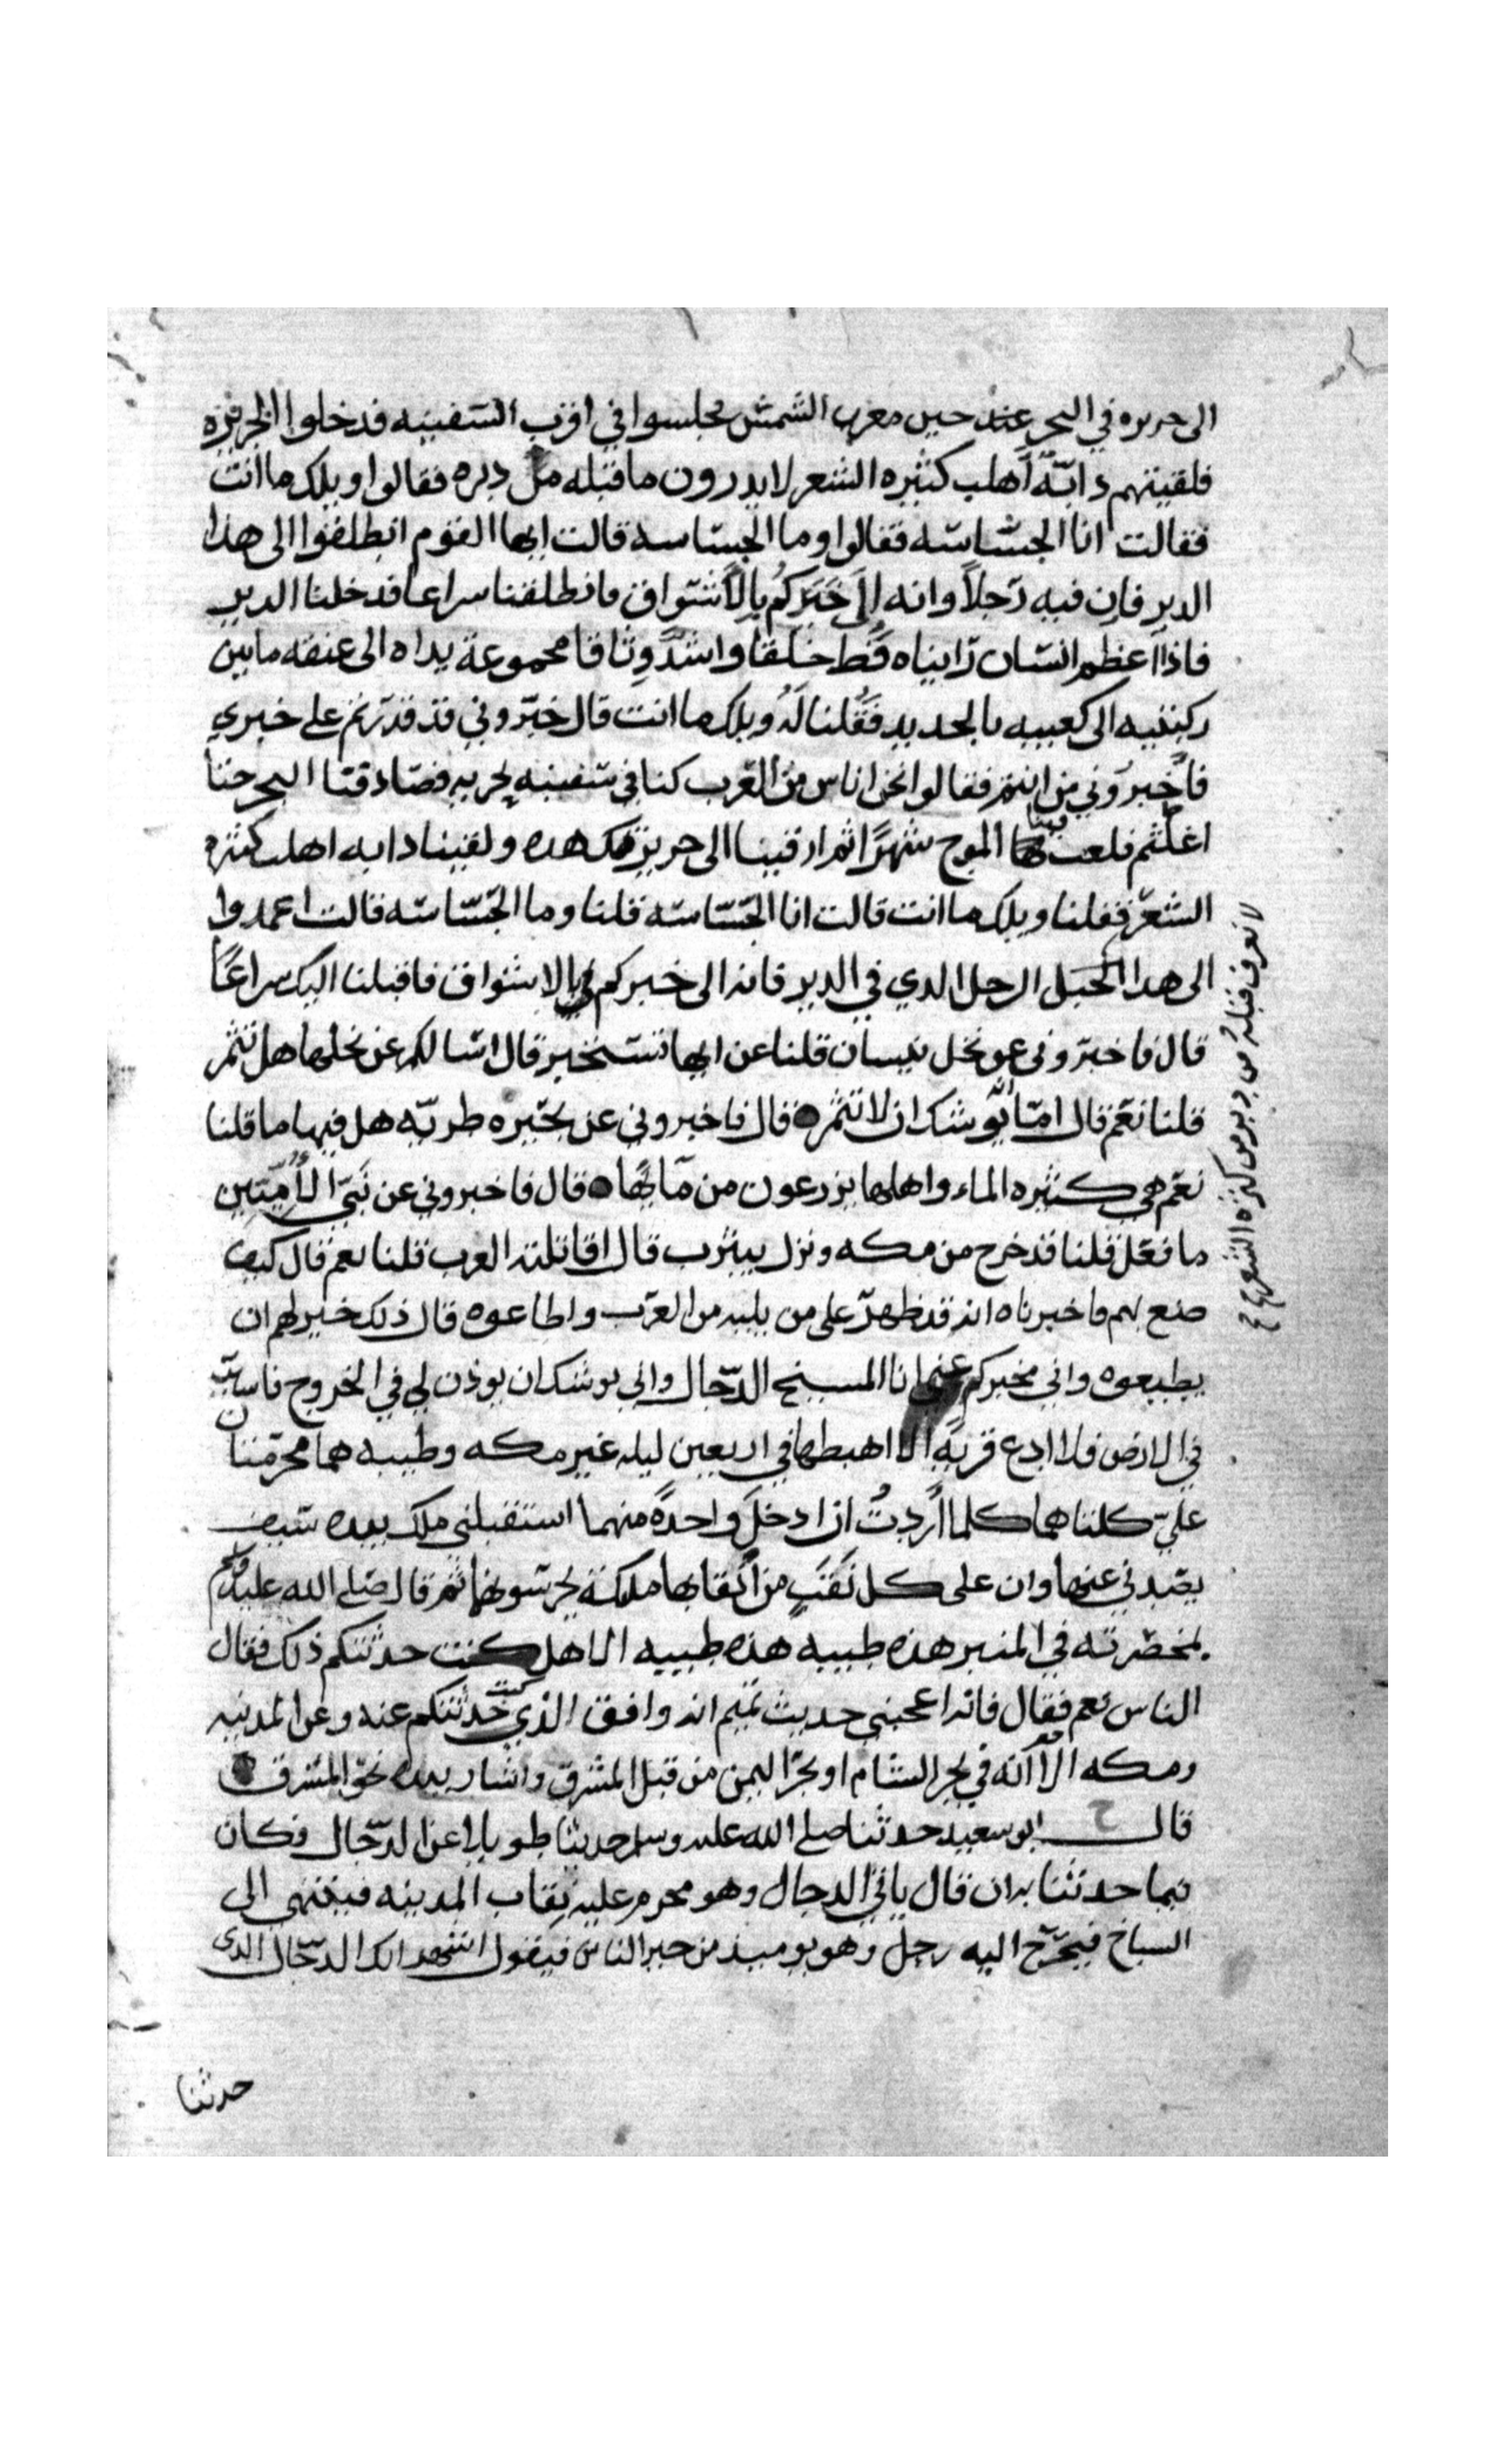 الى جزيره في البحر عند حين مغرب الشمش فجلسوا في اقرب السفينه فدخلوا الجزيزه
فلقيتهم دابّةٌ أهلب كثيره الشعر لا يدرون ما قبله من دبره فقالوا ويلك ما انت
فقالت انا الجسّاسه فقالوا وما الجسّاسه قالت ايها القوم انطلقوا الى هذا
الدير فان فيه رَجلاً وانه الى خَبَركُم بالأَشواق فانطلقنا سراعا فدخلنا الدير
فاذا اعظم انسان رايناه قَط خلقًا واشدَّ وِثاقا مجموعة يداه الى عنقه ما بين
ركبتيه الى كعبيه بالحديد فَقُلنا لَهُ ويلك ما انت قال خبّروني قد قدرتم على خبري
فاخبروني من انتم فقالوا نحن اناس من العَرب كنا في سفينه بحريه فصادفنا البحر حتنا
اغلتم فلعب بنا الموج شهرًا ثم ارفينا الى جزيرتك هده ولقينا دابه اهلب كثيره
الشعر فقلنا ويلك ما انت قالت انا الجسّاسه قلنا وما الجسّاسه قالت اعمدوا
الى هدا الرجل الدي في الدير فانه الى خبركم بالاشواق فاقبلنا اليك سراعًا
قال فاخبروني عن نخل بيسان قلنا عن ايها تستخبر قال اسالكم عن نخلها هل تثمر
قلنا نعم قال امّا انّه يوشك ان لا تثمر قال فاخبروني عن بحيره طبريّه هل فيها ما قلنا
نعم هي كثيره الماء واهلها يزرعون من مآيها قال فاخبروني عن نَبيّ الأُمّيّين
ما فعل قلنا قد خرج من مكه ونزل بيثرب قال اقاتلته العرب قلنا نعم قال كيف
صنع بهم فاخبرناه انه قد ظهر على من يليه من العرب واطاعوه قال ذلك خير لهم ان
يطيعوه واني مخبركم عني انا المسيح الدّجال واني يوشك ان يوذن لي في الخروج فاسير
في الارض فلا ادع قريةً الا اهبطها في اربعين ليله غير مكه وطيبه هما محرّمتان
عليّ كلتاهما كلما أردتُ ان ادخلَ واحدةً منهما استقبلني ملك بيده سَيف
يصدني عنها وان على كل نَقَبٍ من أنقابها ملايكة يحرسونها ثم قال صلى الله عليه وسلم
بمخصرته في المنبر هذه طيبه هذه طيبه الا هل كنت حدثتكم ذلك فقال
الناس نعم فقال فانه اعجبني حديث تميم انه وافق الذي كنت حَدثتكم عنه وعن المدينه
ومكه الا انّه في بحر الشام او بحر اليمن من قبل المشرق واشار بيده نحو المشرق
قال ابو سعيد حدثنا صلى الله عليه وسلم حديثا طويلا عن الدّجال فكان
فيما حدثنا به ان قال ياتي الدجال وهو محرم عليه نِقاب المدينه فينتهي الى
السباخ فيخرج اليه رجل وهو يوميذ من خير الناس فيقول اشهد انك الدّجّال الدى
حدثنا
لا نعرف قبلهُ من دبره من كثرة الشعر